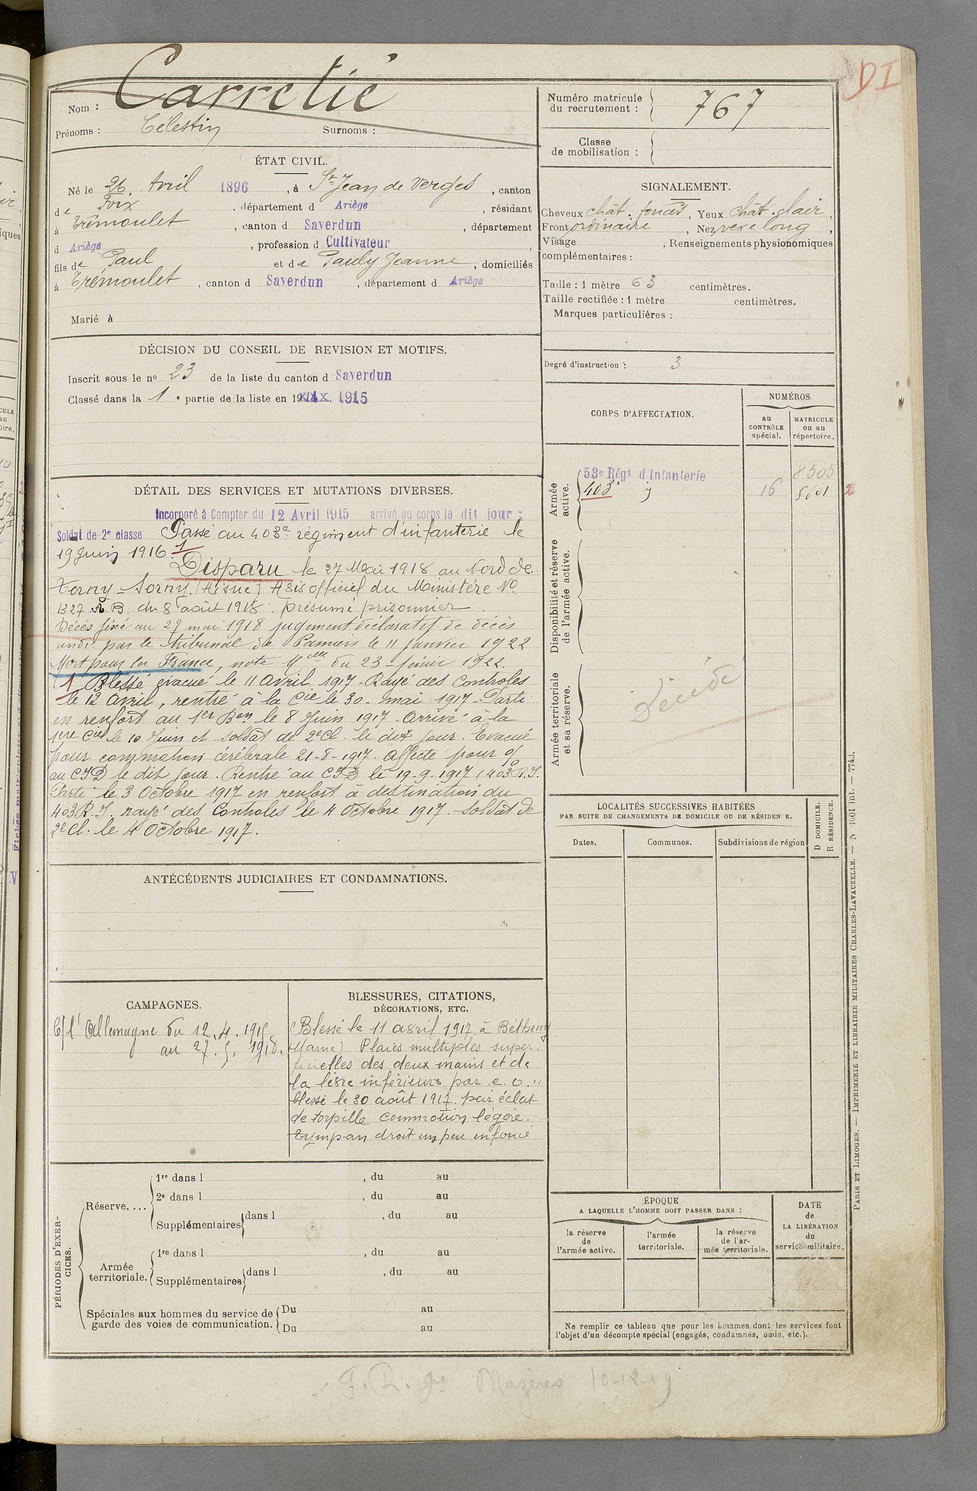 DI
Nom : Carretié
Prénoms : Célestin Surnoms :
Numéro matricule du recrutement : 767
Classe de mobilisation :
ÉTAT CIVIL.
Né le 26 Avril 1896, à St Jean de Verges, canton
de Foix, département d Ariège, résidant
à Trémoulet, canton d Saverdun, département
d Ariège, profession d Cultivateur
fils de Paul et de Pauly Jeanne, domiciliés
à Trémoulet, canton d Saverdun, département d Ariège
Marié à
SIGNALEMENT.
Cheveux chât. foncé, Yeux chât. clair,
Front ordinaire, Nez vexe long,
Visage , Renseignements physionomiques
complémentaires :
Taille : 1 mètre 63 centimètres.
Taille rectifiée : 1 mètre centimètres.
Marques particulières :
Degré d'instruction : 3
DÉCISION DU CONSEIL DE REVISION ET MOTIFS.
Inscrit sous le no 23 de la liste du canton d Saverdun
Classé dans la 1e partie de la liste en 19 1915
DÉTAIL DES SERVICES ET MUTATIONS DIVERSES.
Incorporé à Compter du 12 Avril 1915 arrivé au corps le dit jour ;
Soldat de 2e classe Passé au 403e régiment d'infanterie le
19 Juin 1916 1
Disparu le 27 Mai 1918 au Nord de
Sorny (Aisne) Avis officiel du Ministère No
1327 R.B. du 8 août 1918. présumé prisonnier.
Décès fixé au 27 mai 1918 jugement déclaratif de décès
rendu par le tribunal de Pamiers le 11 janvier 1922
Mort pour la France, note Melle du 23 février 1922.
(1 Blessé évacué le 11 Avril 1917. Rayé des Controles
le 12 avril, rentré à la Cie le 30 mai 1917. Parti
en renfort au 1er Bon le 8 Juin 1917. Arrivé à la
1ere Cie le 10 Juin et soldat de 2eCl. le dit jour. Evacué
pour commotion cérébrale 21-8-1917. Affecté pour o/
au CID le dit jour. Rentré au CID le 19.9.1917 (403 R.I.
Parti le 3 Octobre 1917 en renfort à destination du
403 R.I, rayé des Controles le 4 Octobre 1917. Soldat de
2eCl. le 4 Octobre 1917.
CORPS D'AFFECTATION.
NUMÉROS
au CONTRÔLE spécial.
MATRICULE ou au répertoire.
Armée active.
53e Régt d'Infanterie 8505
403e 16 5001
Disponibilité et réserve de l'armée active.
Armée territoriale et sa réserve.
Décédé
LOCALITÉS SUCCESSIVES HABITÉES
PAR SUITE DE CHANGEMENTS DE DOMICILE OU DE RÉSIDENCE.
Dates. Communes. Subdivisions de région
D DOMICILE.
R RÉSIDENCE.
ANTÉCÉDENTS JUDICIAIRES ET CONDAMNATIONS.
CAMPAGNES.
C/ l'Allemagne du 12.4.1915
au 27.5.1918.
BLESSURES, CITATIONS,
DÉCORATIONS, ETC.
Blessé le 11 avril 1917 à Bétheny
(Marne) Plaies multiples super-
ficielles des deux mains et de
la lèvre inférieure par e. o.
blessé le 30 août 1917 par éclat
de torpille commotion légère.
tympan droit un peu enfoncé
PÉRIODES D'EXERCICES.
Réserve....
1re dans l , du au
2e dans l , du au
Supplémentaires dans l , du au
Armée territoriale.
1re dans l , du au
Supplémentaires dans l , du au
Spéciales aux hommes du service de
garde des voies de communication.
Du au
Du au
ÉPOQUE
A LAQUELLE L'HOMME DOIT PASSER DANS :
la réserve de l'armée active.
l'armée territoriale.
la réserve de l'armée territoriale.
DATE de LA LIBÉRATION du service militaire.
Ne remplir ce tableau que pour les hommes dont les services font
l'objet d'un décompte spécial (engagés, condamnés, omis, etc.).
PARIS ET LIMOGES. — IMPRIMERIE ET LIBRAIRIE MILITAIRES CHARLES-LAVAUZELLE.
Mazères 10-12-19